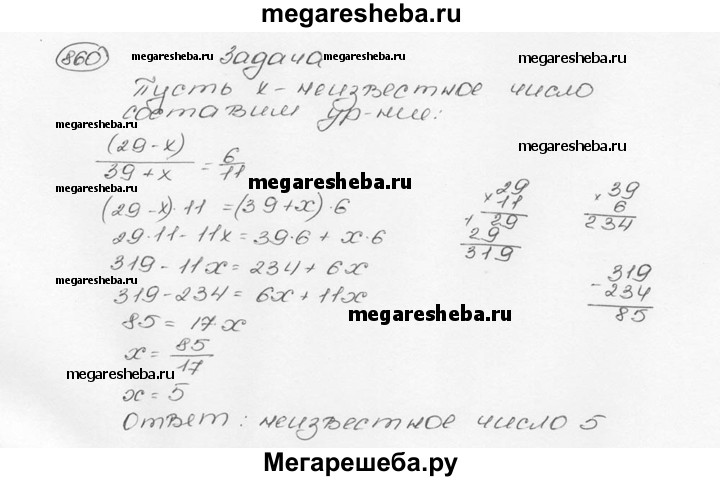 megaresheba.ru
860 megaresheba.ru Задача megaresheba.ru
Пусть x - неизвестное число
megaresheba.ru составим ур-ние: megaresheba.ru
(29-x)/39+x = 6/11
megaresheba.ru megaresheba.ru megaresheba.ru
(29-x)·11 =(39+x)·6
29·11-11x=39·6+x·6
319-11x=234+6x
319-234=6x+11x
megaresheba.ru
85=17·x
megaresheba.ru
x=85/17
megaresheba.ru
x=5
megaresheba.ru
Ответ: неизвестное число 5
× 29
11
+ 29
29
319
× 39
6
234
- 319
234
85
Мегарешеба.ру